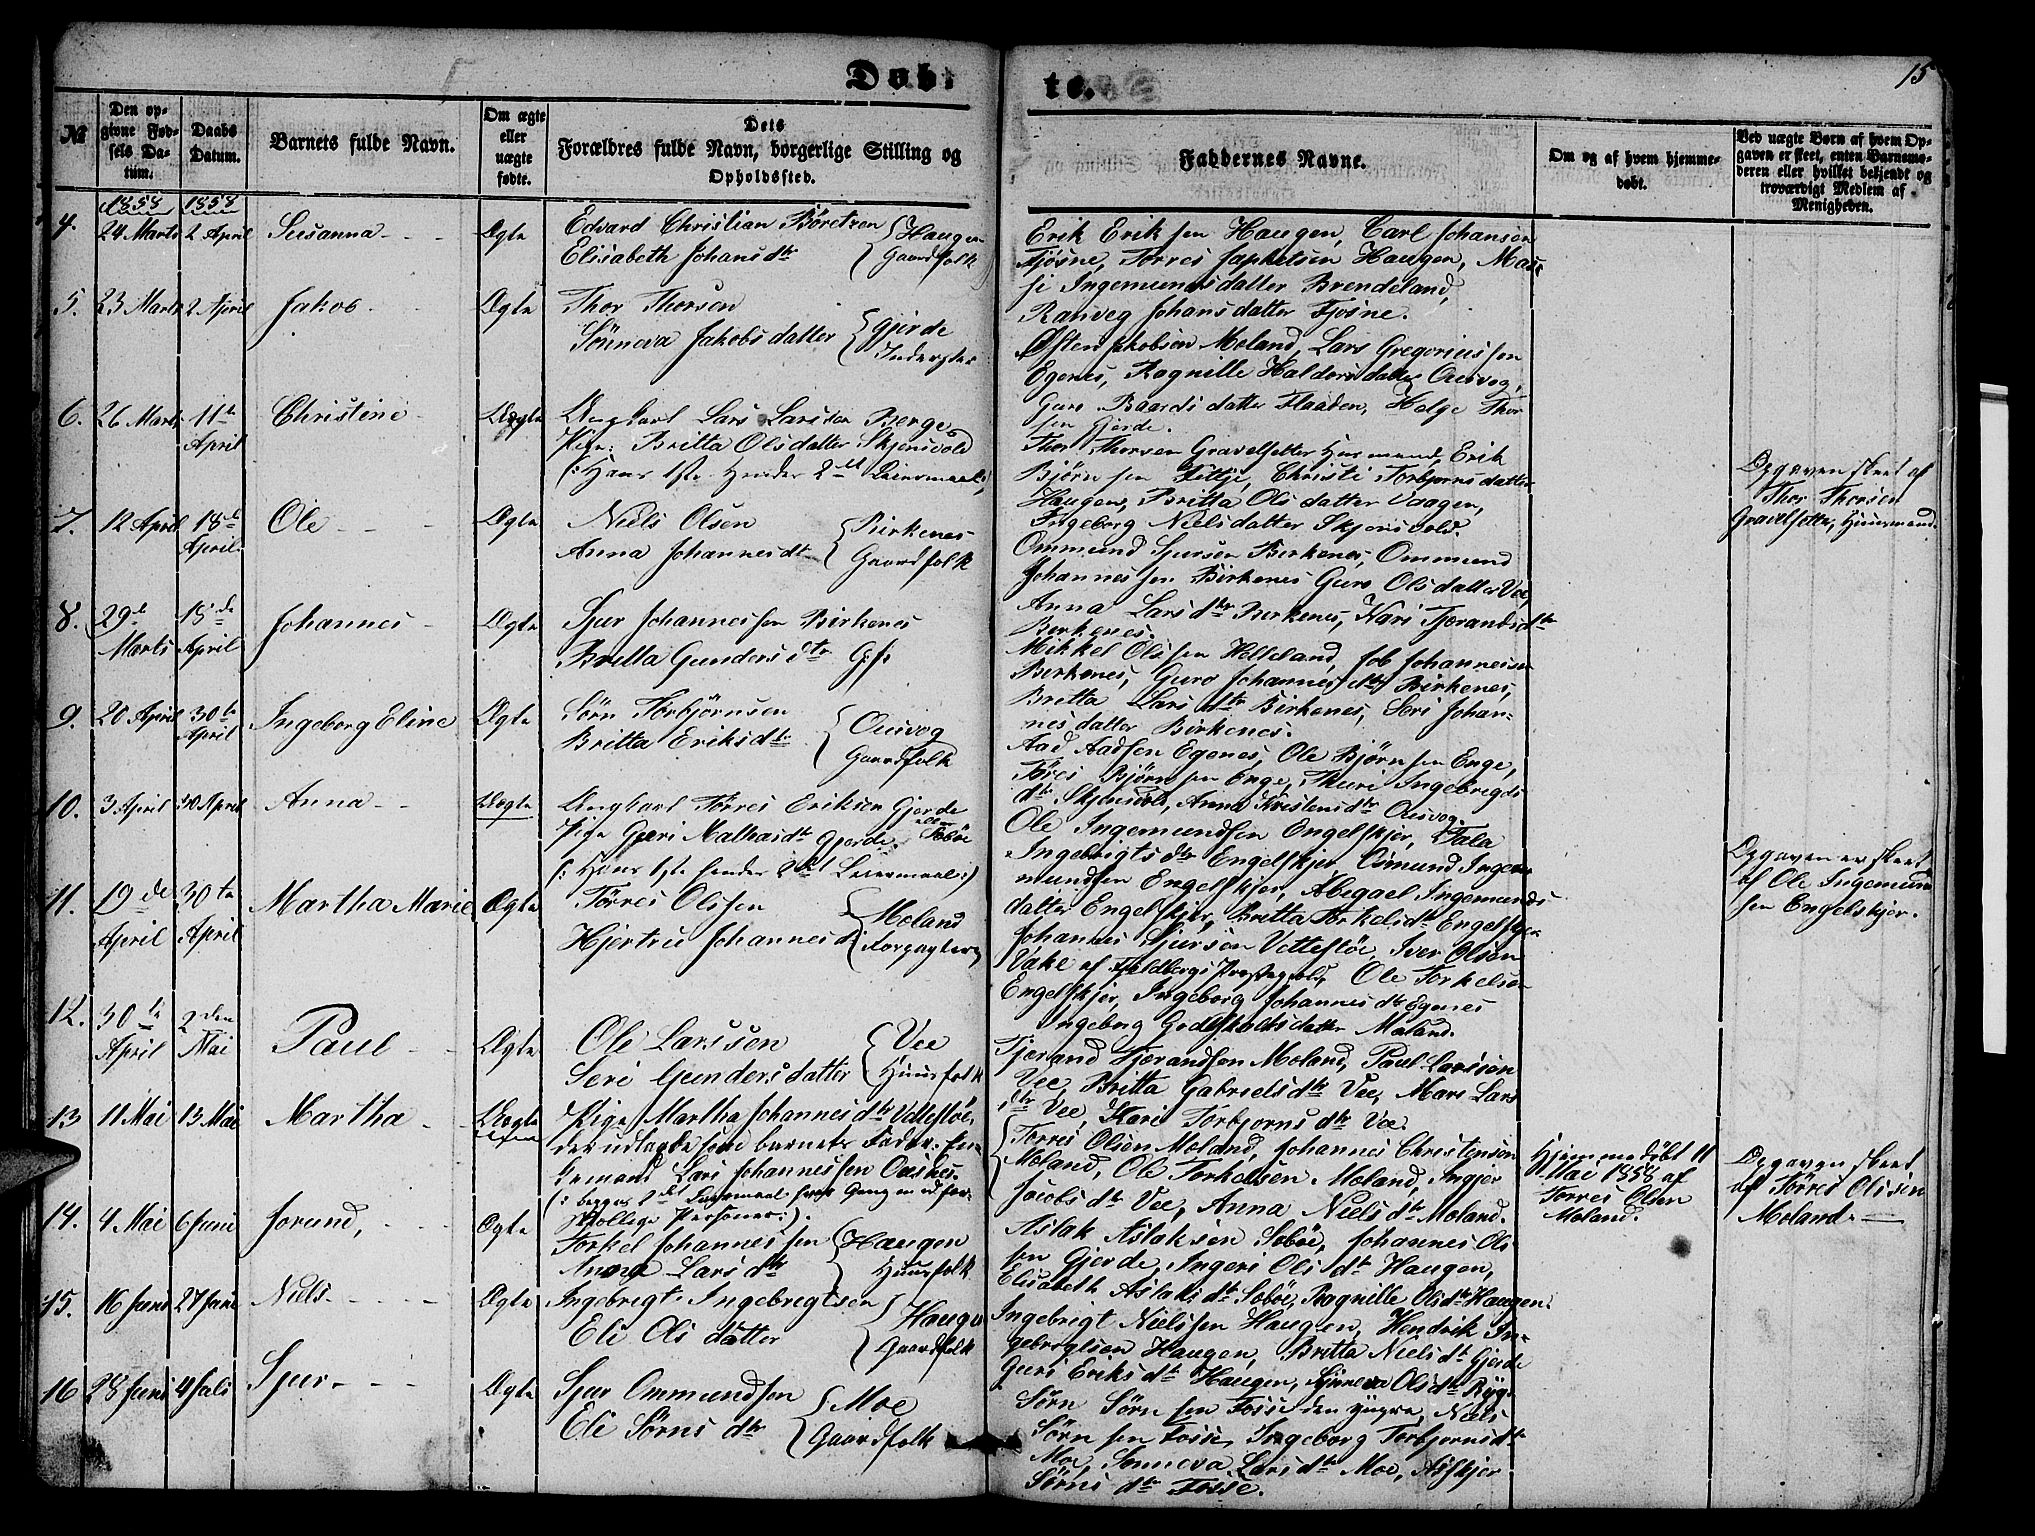 Døb-
te.
15
№
Den op-
givne Fød-
sels Da-
tum.
Daabs
Datum.
Barnets fulde Navn.
Om ægte
eller
uægte
fødte.
Dets
Forældres fulde Navn, borgerlige Stilling og
Opholdssted.
Faddernes Navne.
Om og af hvem hjemme-
døbt.
Ved uægte Børn af hvem Op-
gaven er skeet, enten Barnemo-
deren eller hvilket bekjendt og
troværdigt Medlem af
Menigheden.
1858 1858
4. 24 Marts 2 April Susanna Ægte
Edvard Christian Børetzen
Elisabeth Johansdtr
Haugen
Gaardfolk
Erik Eriksen Haugen, Carl Johansen
Fjøsne, Torres Japhetsen Haugen,
Ingemundsdatter Brendeland,
Ranveg Johansdatter Fjøsne.
5. 23 Marts 2 April Jakob Ægte
Thor Thorsen
Sønneva Jakobsdatter
Gjerde
Inderster
Østen Jakobsen Moland, Lars Gregoriussen
Egenes, Ragnille Haldorsdatter Ousvog,
Guro Baardsdatter Flaaden, Helge Thor
sen Gjerde.
6. 26 Marts 11te
April
Christine Uægte
Ungkarl Lars Larssen Berge
Pige: Britta Olsdatter Skjensvold
(: Hans 1ste Hendes 2det Leiermaal:)
Thor Thorsen Gravelsetter Huusmand, Erik
Bjørnsen Fittje, Christi Torbjørnsdatter
Haugen, Britta Olsdatter Vaagen,
Ingeborg Nielsdatter Skjensvold.
Opgaven skeet af
Thor Thorsen
Gravelsetter, Huusmand.
7. 12 April 18de
April
Ole Ægte
Niels Olsen
Anna Johannesdtr
Birkenes
Gaardfolk
Ommund Sjursen Birkenes, Ommund
Johannessen Birkenes Guro Olsdatter Vee,
Anna Larsdtr Birkenes, Kari Tjerandsdtr
Birkenes.
8. 29de
Marts
18de
April
Johannes Ægte
Sjur Johannessen Birkenes
Britta Gundersdtr Gf:
Mikkel Olssen Helleland, Job Johannessen
Birkenes, Guro Johannesdtr Birkenes,
Britta Larsdtr Birkenes, Seri Johan-
nesdatter Birkenes.
9. 20 April 30te
April
Ingeborg Eline Ægte
Sørn Torbjørnsen
Britta Eriksdtr
Ousvog
Gaardfolk
Aad Aadsen Egenes, Ole Bjørnsen Enge,
Tøres Bjørnsen Enge, Thuri Ingebregts
dtr Skjensvold, Anna Kristensdtr Ousvog.
10. 3 April 30 April Anna Uægte
Ungkarl Torres Eriksen Gjerde
Pige Guri Malhaisdtr Gjerde Søbøe
(: Hans 1ste hendes 2det Leiermaal:)
Ole Ingemundsen Engelskjer, Tala
Ingebrigtsdtr Engelskjer Osmund Inge-
mundsen Engelskjer, Abegael Ingemunds
datter Engelskjer, Britta Torkelsdtr Engelskjer
Opgaven er skeet
af Ole Ingemund
sen Engelskjer.
11. 19de
April
30te
April
Martha Marie Ægte
Torres Olssen
Hjertru Johannesd
Moland
Forpagtere
Johannes Sjursen Vettestøe, Iver Olsen
Vake af Fjeldbergs Præstegield, Ole Torkelsen
Engelskjer, Ingeborg Johannesdtr Egenes
Ingeborg Godtskalksdatter Moland.
12. 30te
April
2den
Mai
Paul Ægte
Ole Larssen
Seri Gundersdatter
Vee
Huusfolk
Tjerand Tjerandsen Moland, Paul Larsson
Vee, Britta Gabrielsdtr Vee, Mari Lars
dtr Vee, Kari Torbjornsdtr Vee.
13 11 Mai 13 Mai Martha Uægte
Pige Martha Johannesdtr Vettestøe,
der udlagde som barnets Fader: En-
kemand Lars Johannessen
(: begges 2det Leiermaal
Personer:).
Torres Olsen Moland, Johannes Christensen
Moland, Ole Torkelsen Moland, Angjer
Jacobsdtr Vee, Anna Nielsdtr Moland.
Hjemmedøbt 11
Mai 1858 af
Torres Olsen
Moland.
Opgaven skeet
af Tørres Olssen
Moland.
14. 4 Mai 6 Juni Jorund, Ægte
Torkel Johannessen
Anna Larsdtr
Haugen
Huusfolk
Aslak Aslaksen Søbøe, Johannes Ols
sen Gjerde, Ingeri Olsdtr Haugen,
Elisabeth Aslaksdtr Søbøe, Ragnille Olsdtr Haugen.
15. 16 Juni 27 Juni Niels Ægte
Ingebrigt Ingebregtsen
Eli Olsdatter
Haugen
Gaardfolk
Ingebrigt Nielssen Haugen, Hendrik In-
gebrigtsen Haugen, Britta Nielsdtr Gjerde
Guri Eriksdtr Haugen, Synneva Olsdtr Ryg.
16 28 Juni 4 Juli Sjur Ægte
Sjur Ommundsen
Eli Sørnsdtr
Moe
Gaardfolk
Sørn Sørnsen Fosse den yngre, Niels
Sørnsen Fosse, Ingeborg Torbjornsdtr
Moe, Sønneva Larsdtr Moe, Askjer
Sørnsdtr Fosse.